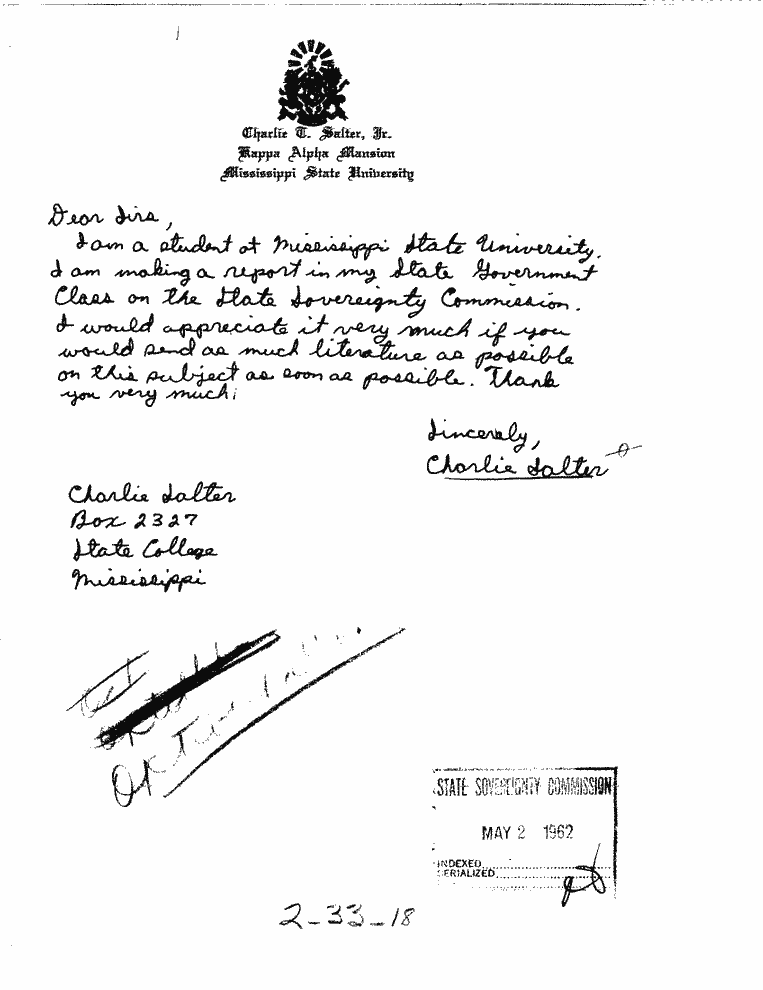 Charlie T. Salter, Jr.
Kappa Alpha Mansion
Mississippi State University
Dear Sirs,
I am a student at Mississippi State University.
I am making a report in my State Government
Class on the State Sovereignty Commission.
I would appreciate it very much if you
would send as much literature as possible
on this subject as soon as possible. Thank
you very much;
Sincerely,
Charlie Salter
Charlie Salter
Box 2327
State College
Mississippi
STATE SOVEREIGNTY COMMISSION
MAY 2 1962
INDEXED
SERIALIZED
2-33-18